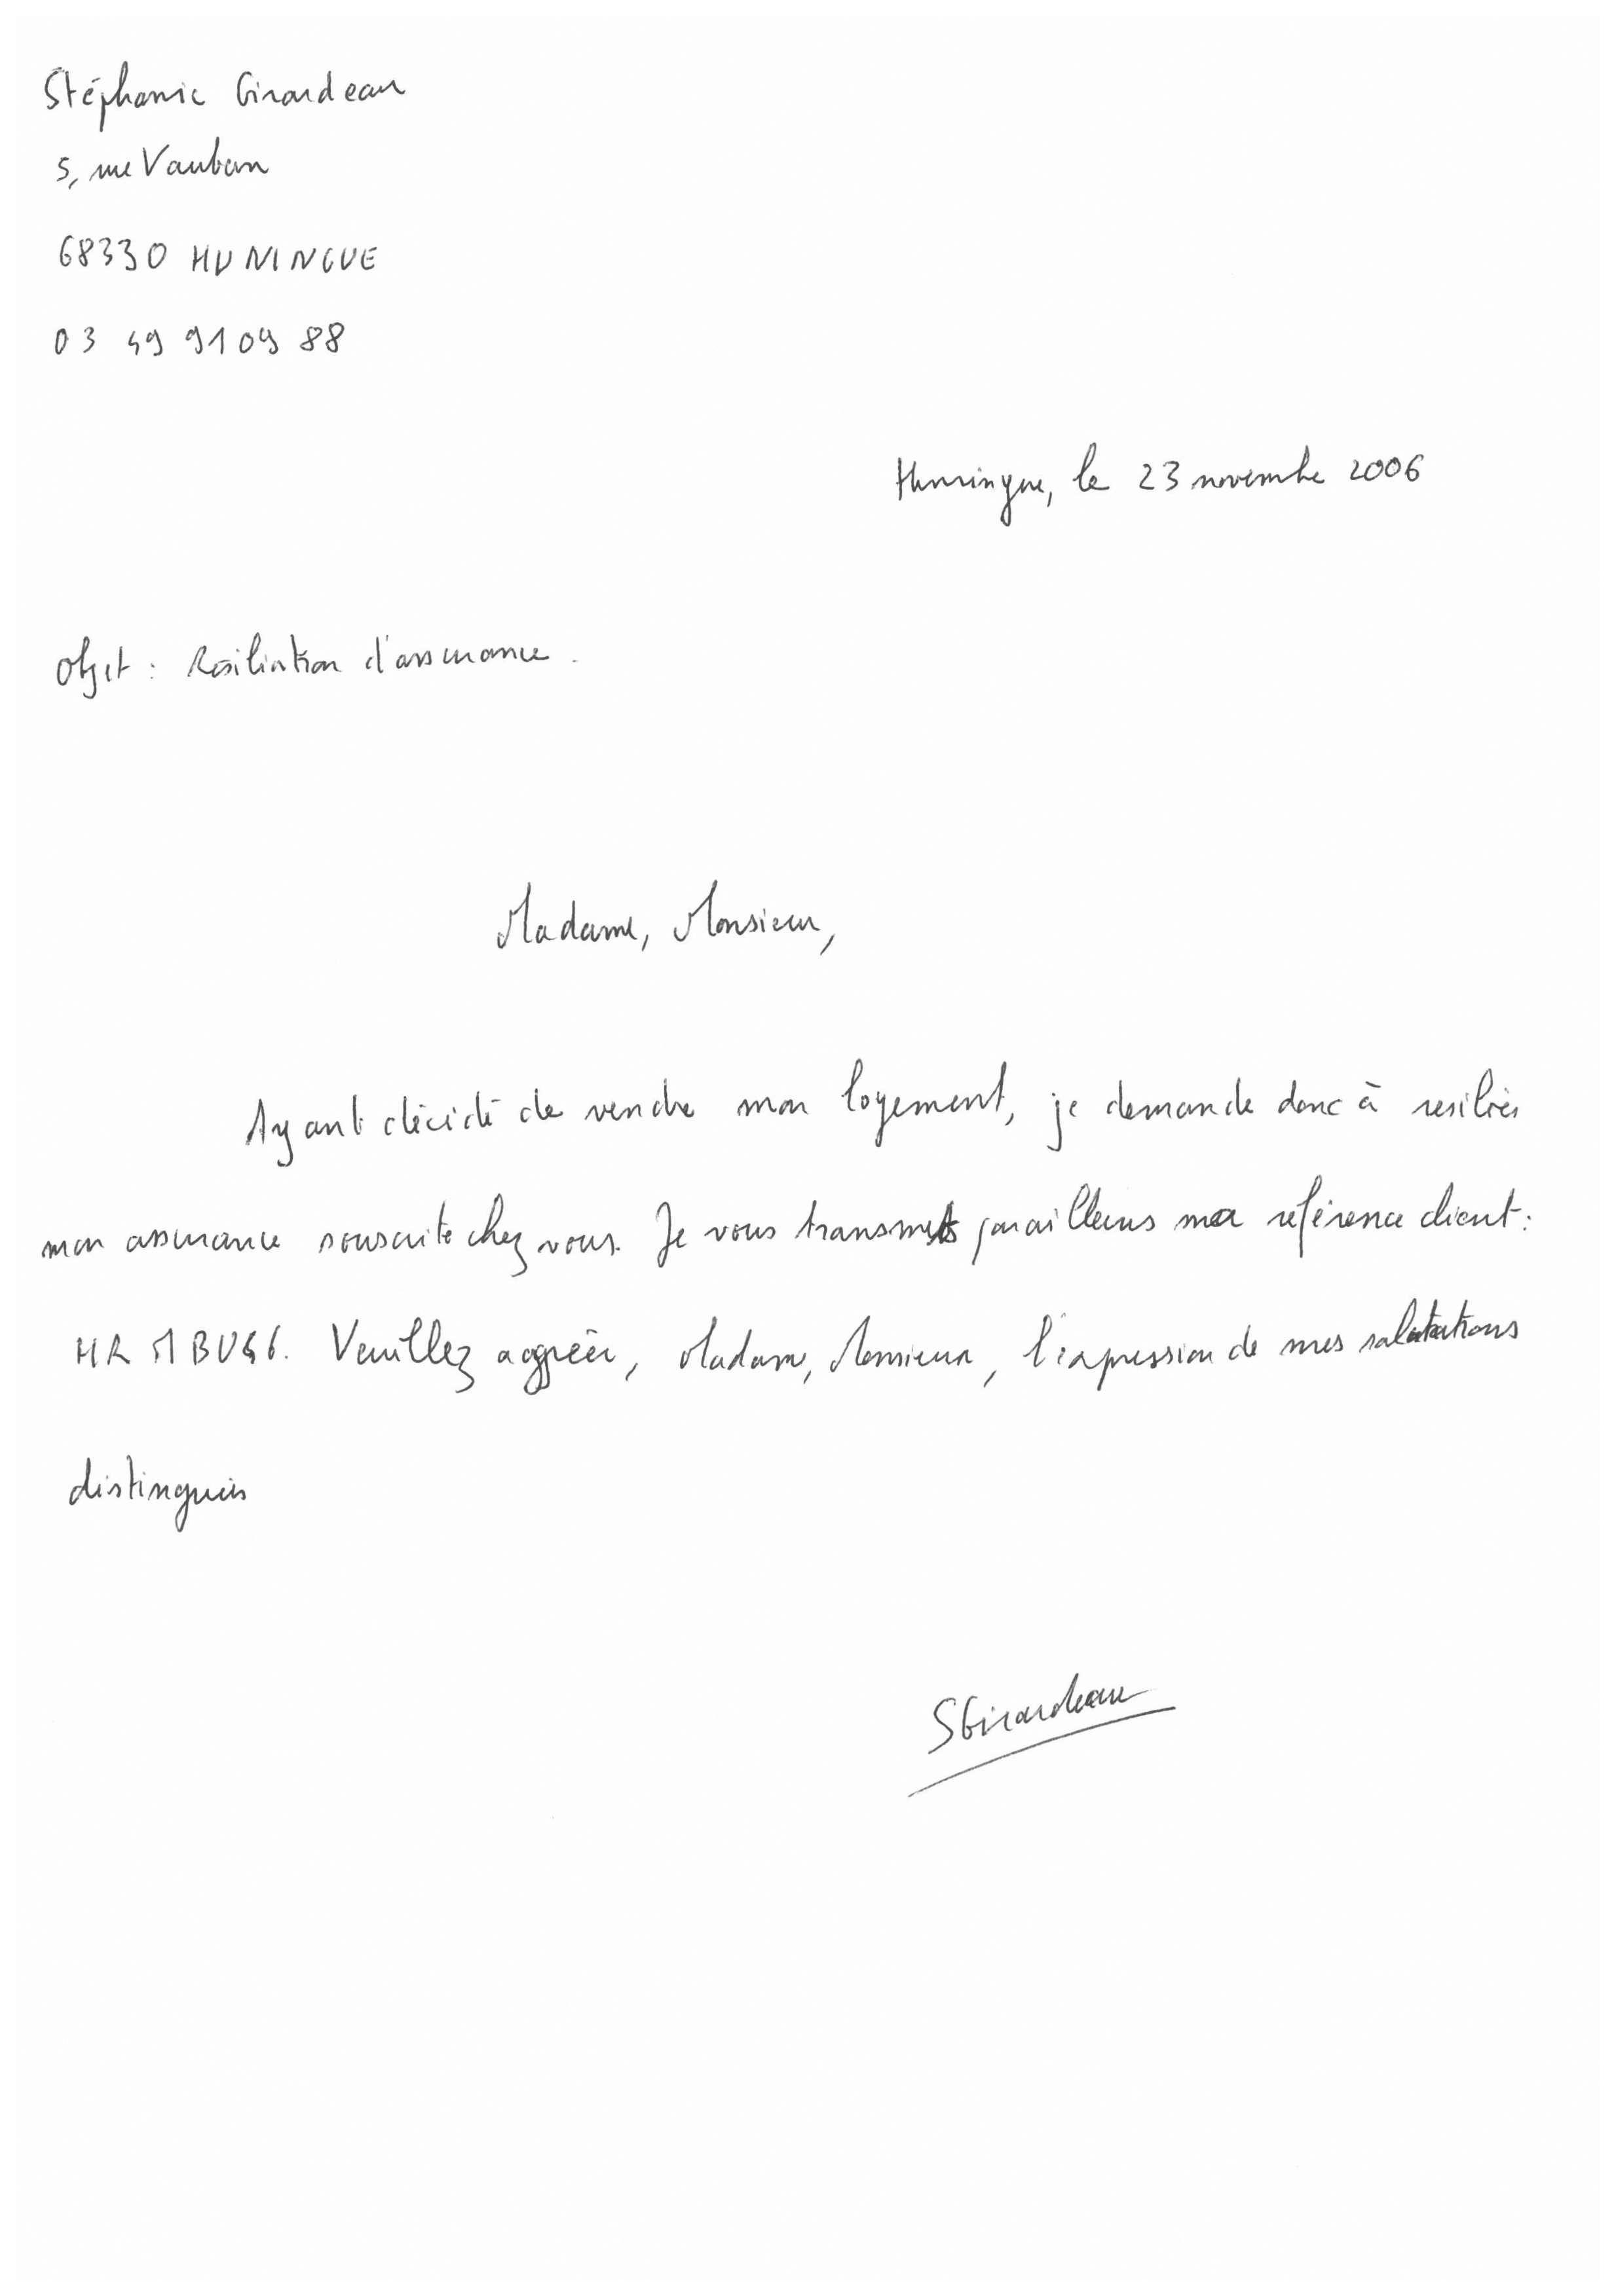 Stéphanie Girardeau
5, rue Vauban
68330 HUNINGUE
03 49 91 09 88
Huningue, le 23 novembre 2006
Objet : Résiliation d'assurance.
Madame, Monsieur,
Ayant décidé de vendre mon logement, je demande donc à resilier
mon assurance souscrite chez vous. Je vous transmets par ailleurs ma référence client :
Veuillez aggréer, Madame, Monsieur, l'expression de mes salutations
distinguées
SGirardeau